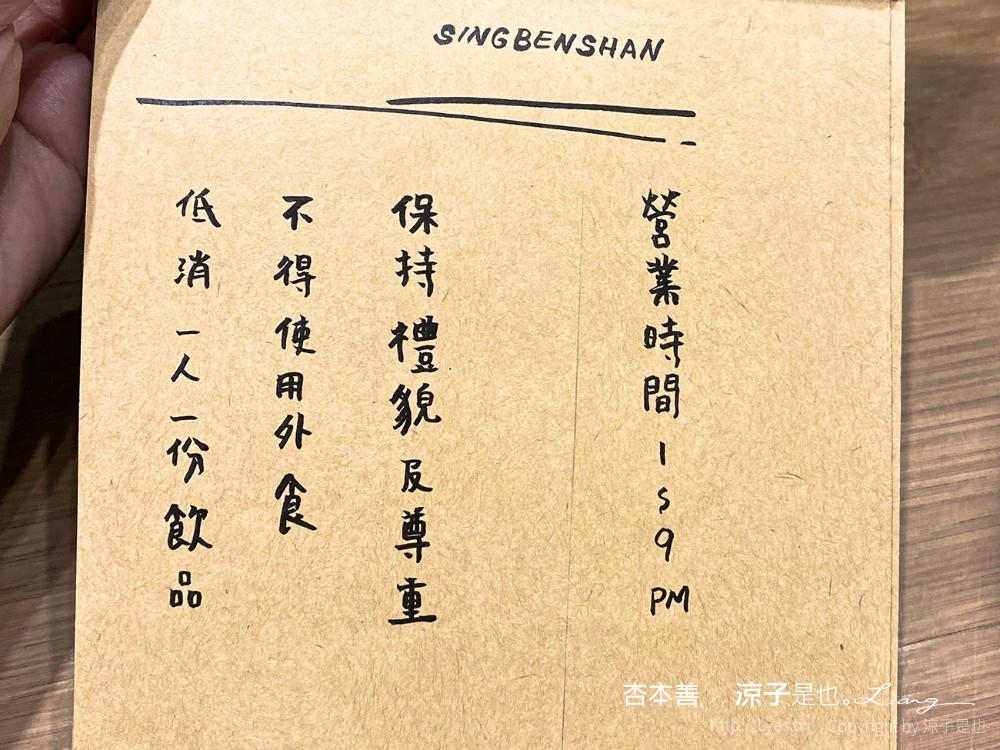 SINGBENSHAN
營業時間 1 ~ 9 PM
保持禮貌及尊重
不得使用外食
低消一人一份飲品
杏本善 × 涼子是也。Liang
Copyright by 涼子是也